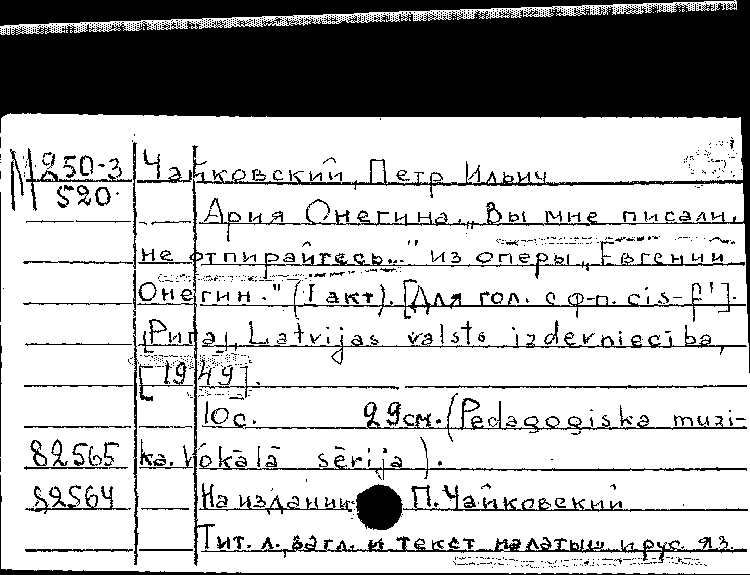 М 250-3 Чайковский, Петр Ильич
520.
Ария Онегина „Вы мне писали,
не отпирайтесь..." из оперы „Евгений
Онегин." (I акт). [Для гол. с ф-п. cis-f¹].
[Рига], Latvijas valsts izdevniecība,
[1949].
10с. 29см. (Pedagogiska muzi-
82565 ka. Vokālā sērija).
82564 На издании П. Чайковский
Тит. л., загл. и текст на латыш. и рус. яз.